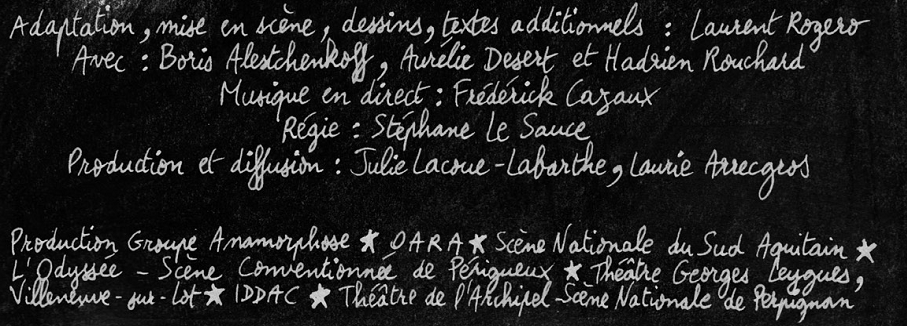 Adaptation, mise en scène, dessins, textes additionnels : Laurent Rogero
Avec : Boris Alestchenkoff, Aurélie Desert et Hadrien Rouchard
Musique en direct : Frédérick Cazaux
Régie : Stéphane Le Sauce
Production et diffusion : Julie Lacoue-Labarthe, Laurie Arrecgros
Production Groupe Anamorphose ★ OARA ★ Scène Nationale du Sud Aquitain ★
L'Odyssée - Scène Conventionnée de Périgueux ★ Théâtre Georges Leygues,
Villeneuve-sur-Lot ★ IDDAC ★ Théâtre de l'Archipel-Scène Nationale de Perpignan